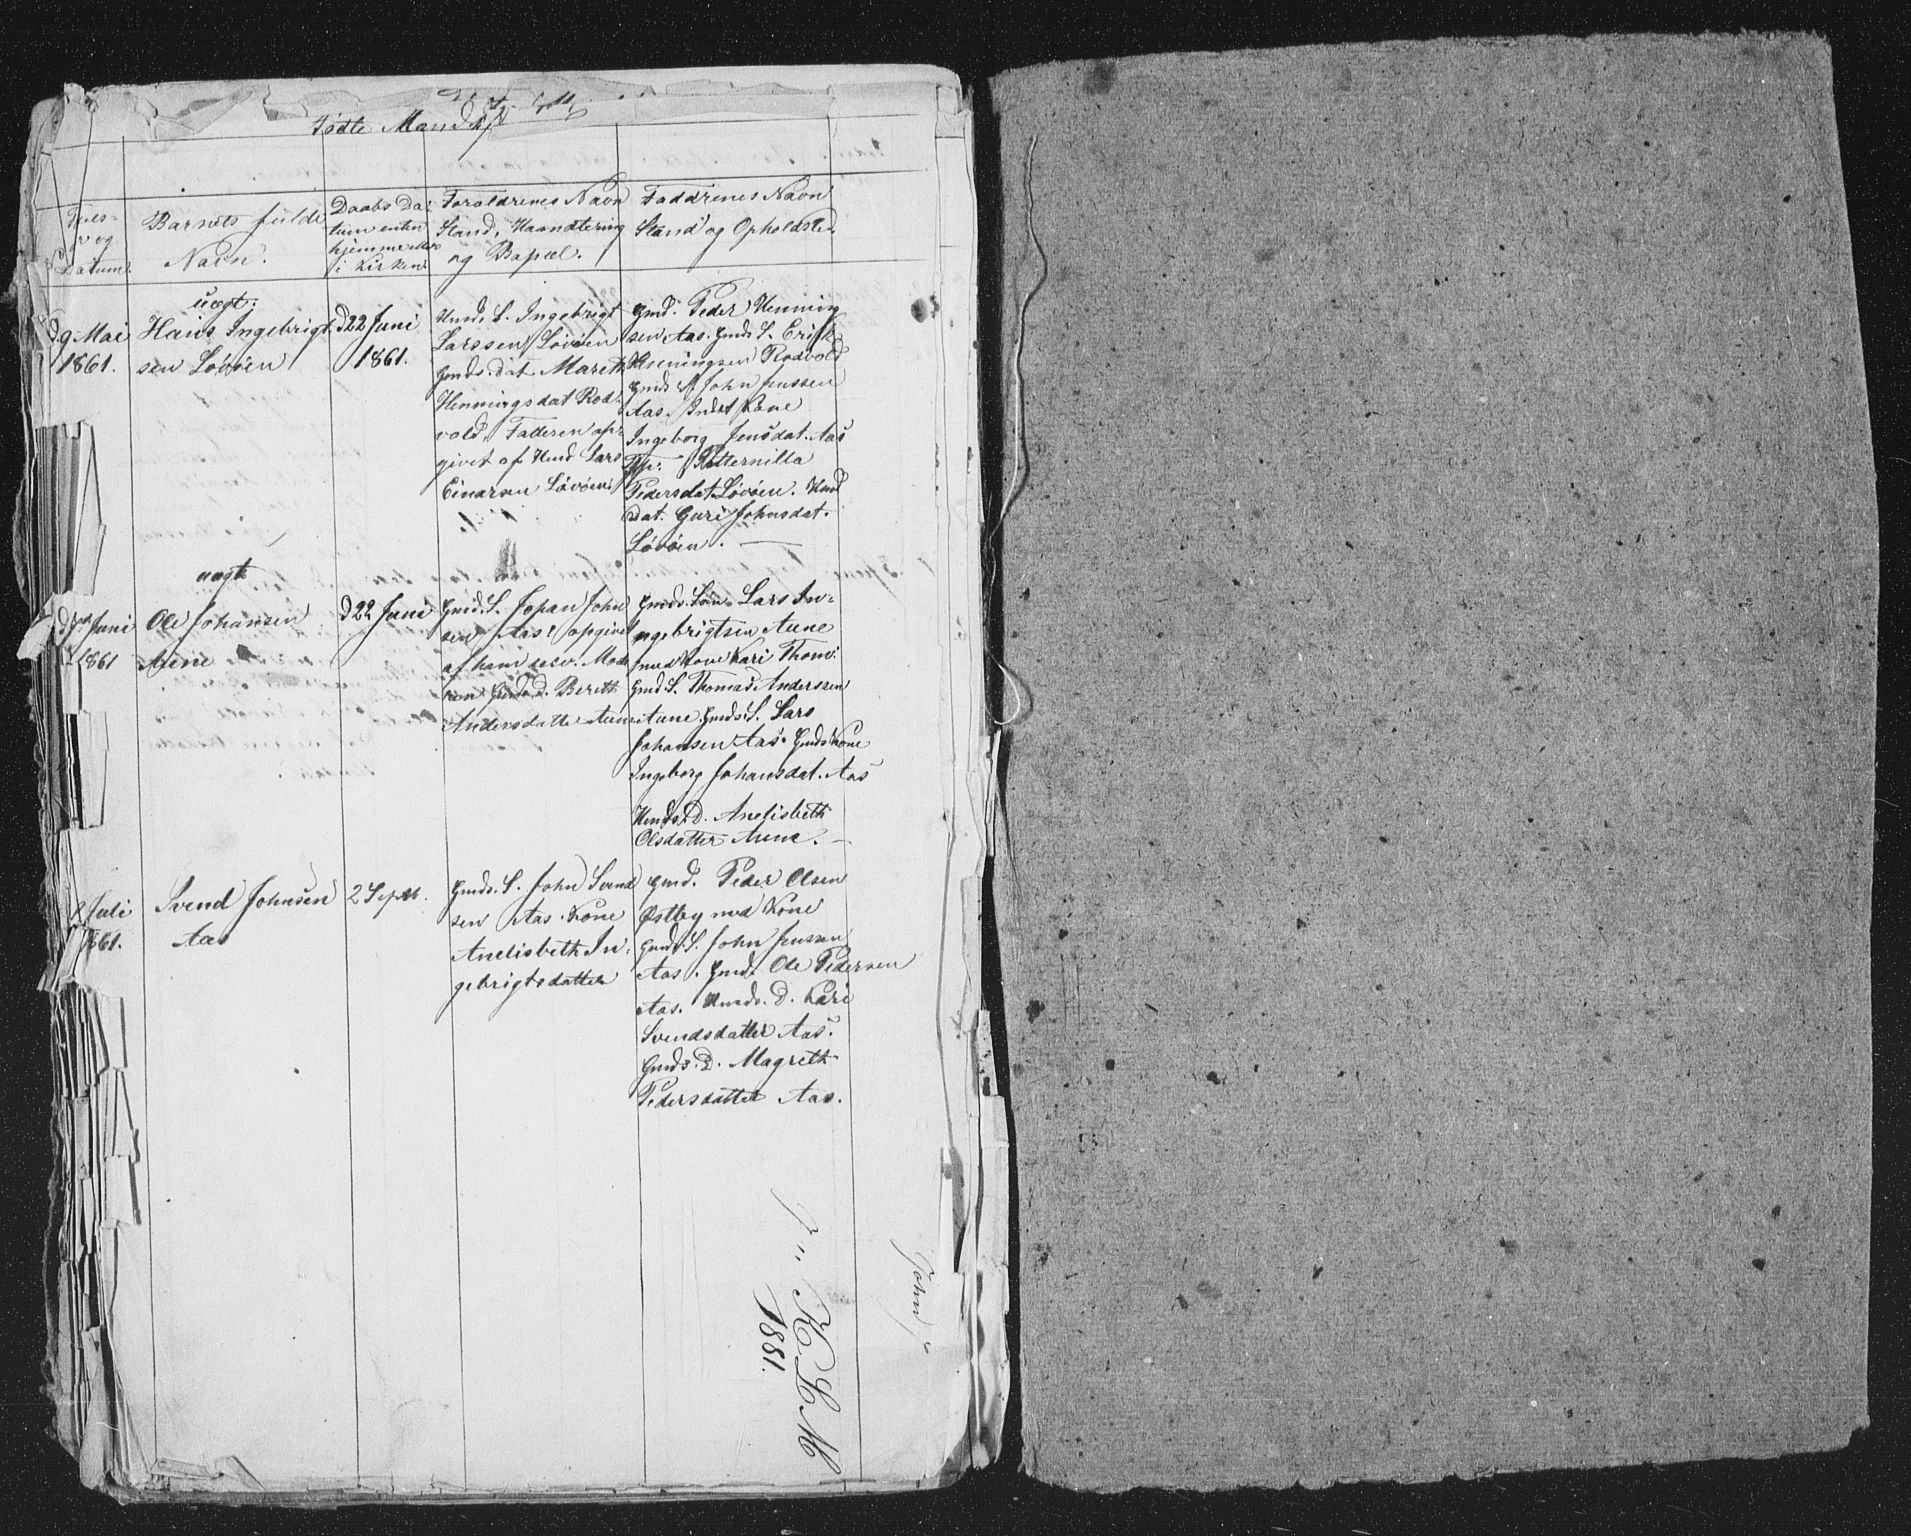 Fødte Mandkj
Datum.
Barnets fulde
Navn.
Daabs Da-
tum enten
hjemme eller
i Kirken.
Foroldrenes Navn
Stand, Haandtering
og Bopæl.
Faddrenes Navn
Stand og Opholdsted.
d 9 Mai
1861.
uægt.
Hans Ingebrigt
sen Løvøen
d 22 Juni
1861.
Hmds. S. Ingebrigt
Larssen Løvøen
Gmds. dat Marith
Henningsdat Rod-
vold. Faderen op-
givet af Hmd Lars
Einarsen Løvøen.
Gmd. Peder Henning
sen Aas. Gmds S. Erik
Henningsen Rodvold
Gmds S. John Jenssen
Aas. Indst Kone
Ingeborg Jensdat. Aas
Petternilla
Pedersdat Løvøen. Hmd
dat. Guri Johnsdat.
Løvøen.
uægt
Juni
1861
Ole Johansen
Aune
d 22 Juni
Gmd. S. Johan John
sen Aas opgivet
af ham selv. Mode
ren Gmds. d. Berith
Andersdatter Aune
Gmds. Søn Lars In-
gebrigtsen Aune
med Kone Kari Thom.
Gmd. S. Thomas Anderssen
Aune. Gmds. S. Lars
Johansen Aas. Gmds Kone
Ingeborg Johansdat. Aas
Hmds. D. Anelisbeth
Olsdatter Aune.
Juli
1861.
Svend Johnsen
Aas
2 Septb.
Gmds. S. John Svend
sen Aas. Kone
Anelisbeth In-
gebrigtsdatter
Gmd. Peder Olsen
Østby med Kone
Gmds. S. John Jenssen
Aas. Gmd. Ole Pedersen
Aas. Hmds. D. Kari
Svendsdatter Aas.
Gmds. D. Magreth
Pedersdatter Aas.
1881.
John